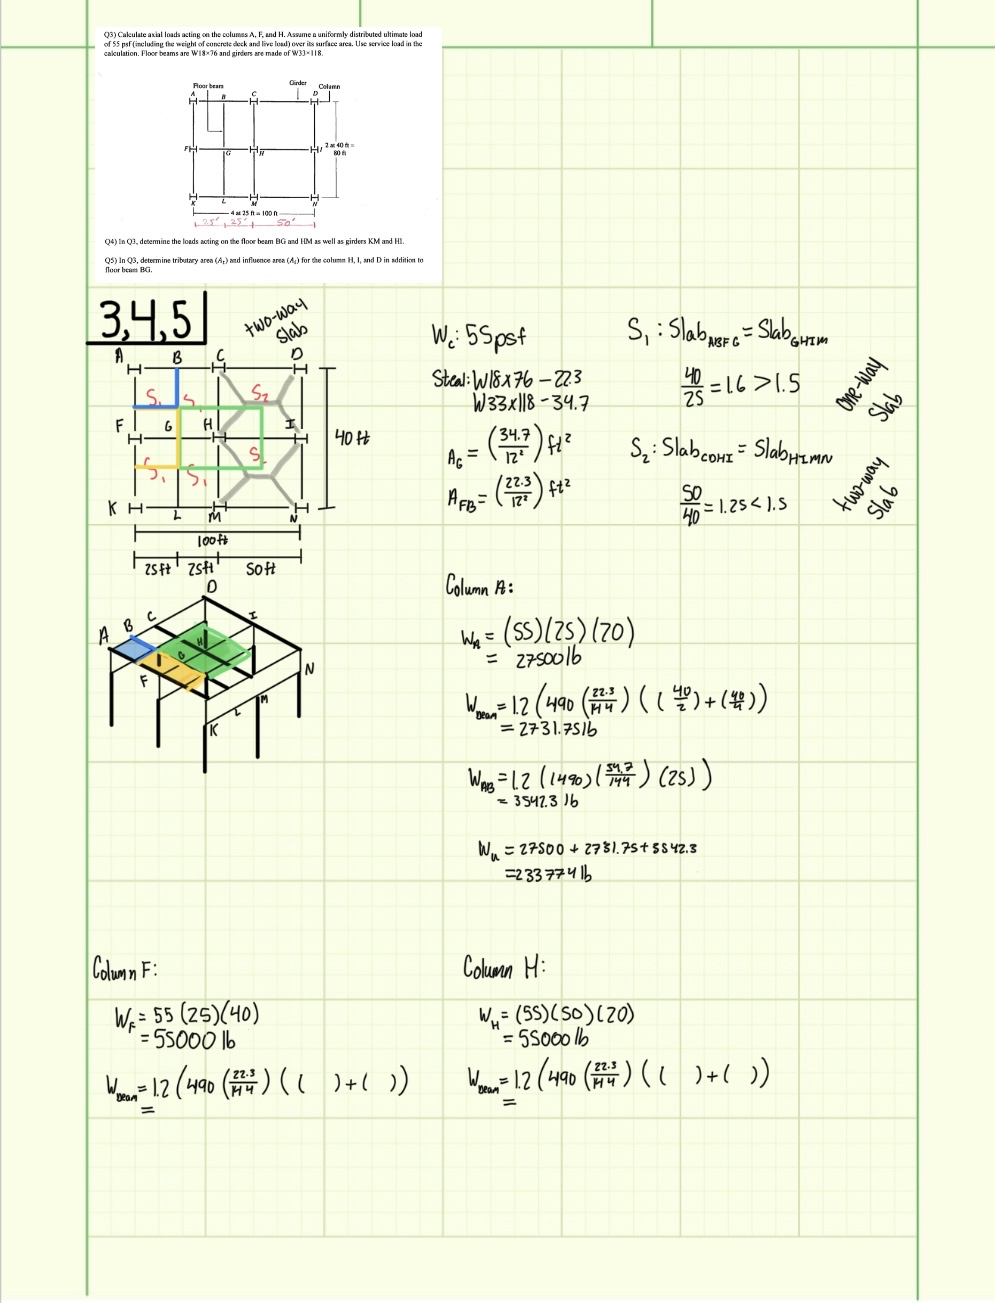 Q3) Calculate axial loads acting on the columns A, F, and H. Assume a uniformly distributed ultimate load
of 55 psf (including the weight of concrete deck and live load) over its surface area. Use service load in the
calculation. Floor beams are W18×76 and girders are made of W33×118.
Floor beam
Girder
Column
A B C D
F G H I
2 at 40 ft =
80 ft
K L M N
4 at 25 ft = 100 ft
25' 25' 50'
Q4) In Q3, determine the loads acting on the floor beam BG and HM as well as girders KM and HI.
Q5) In Q3, determine tributary area (A_T) and influence area (A_I) for the column H, I, and D in addition to
floor beam BG.
3,4,5
two-way
slab
A B C D
S₁ S₁ S₂
F G H I
S₁ S₁ S
K L M N
40 ft
100 ft
25ft 25ft 50ft
W_c: 55psf
Steal: W18x76 – 22.3
W33x118 – 34.7
A_G = (34.7/12²) ft²
A_FB = (22.3/12²) ft²
S₁ : Slab_ABFG = Slab_GHIM
40/25 = 1.6 > 1.5
One-way
Slab
S₂ : Slab_CDHI = Slab_HIMN
50/40 = 1.25 < 1.5
two-way
Slab
D
A B C I
H
G
F N
M
L
K
Column A:
W_A = (55)(25)(20)
= 27500 lb
W_Beam = 1.2 (490 (22.3/144) ((40/2) + (40/4)))
= 2731.75 lb
W_AB = 1.2 (490)(34.7/144)(25))
= 3542.3 lb
W_u = 27500 + 2731.75 + 3542.3
= 233774 lb
Column F:
W_F = 55 (25)(40)
= 55000 lb
W_Beam = 1.2 (490 (22.3/144) (( ) + ( )))
=
Column H:
W_H = (55)(50)(20)
= 55000 lb
W_Beam = 1.2 (490 (22.3/144) (( ) + ( )))
=